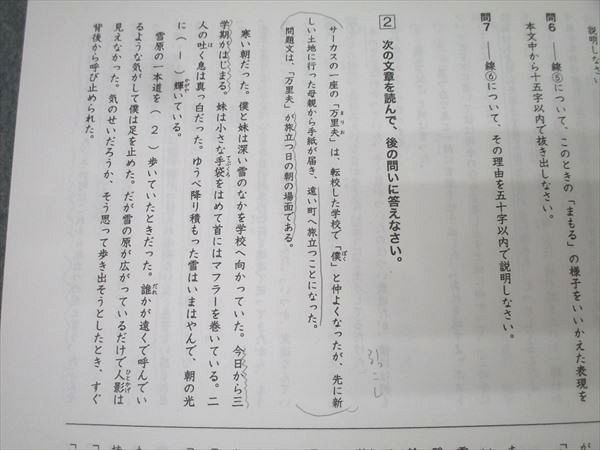 説明しなさい
問6 ――線⑤について、このときの「まもる」の様子をいいかえた表現を
本文中から十五字以内で抜き出しなさい。
問7 ――線⑥について、その理由を五十字以内で説明しなさい。
2 次の文章を読んで、後の問いに答えなさい。
サーカスの一座の「万里夫」は、転校した学校で「僕」と仲よくなったが、先に新
しい土地に行った母親から手紙が届き、遠い町へ旅立つことになった。
問題文は、「万里夫」が旅立つ日の朝の場面である。
引っこし
寒い朝だった。僕と妹は深い雪のなかを学校へ向かっていた。今日から三
学期がはじまる。妹は小さな手袋をはめて首にはマフラーを巻いている。二
人の吐く息は真っ白だった。ゆうべ降り積もった雪はいまはやんで、朝の光
に(1)輝いている。
雪原の一本道を(2)歩いていたときだった。誰かが遠くで呼んでい
るような気がして僕は足を止めた。だが雪の原が広がっているだけで人影は
見えなかった。気のせいだろうか、そう思って歩き出そうとしたとき、すぐ
背後から呼び止められた。